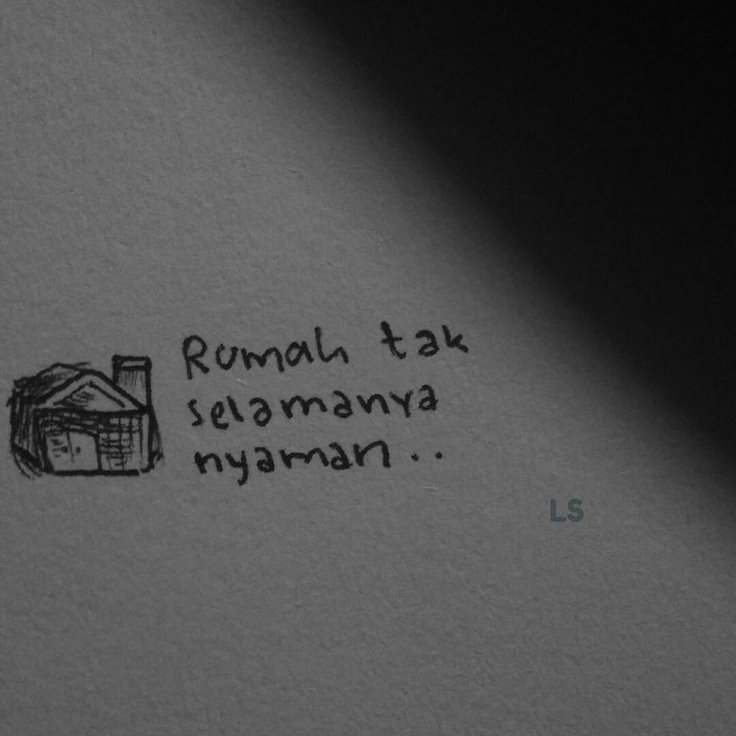 Rumah tak
selamanya
nyaman..
LS